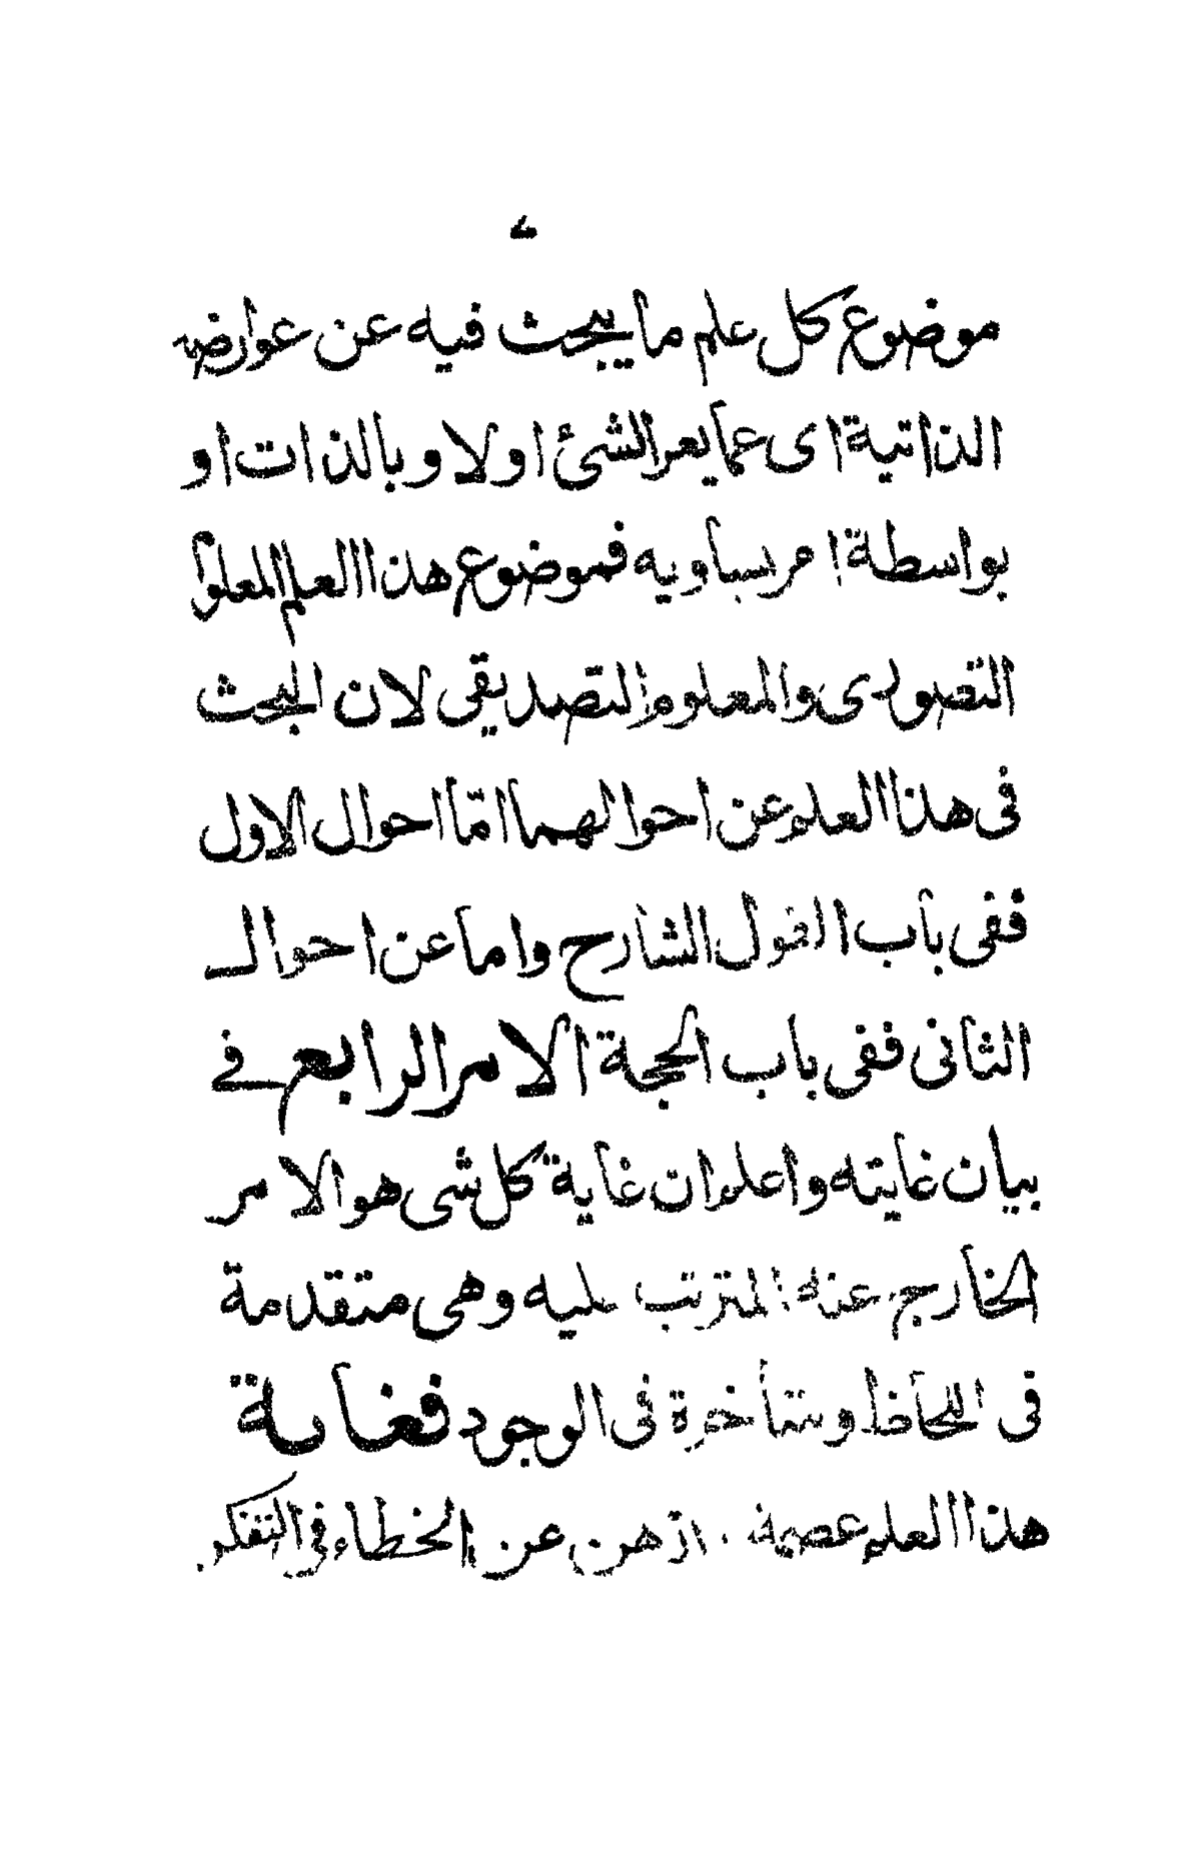 موضوع كل علم ما يبحث فيه عن عوارضه
الذاتية اى عما يعرالشئ اولا وبالذات او
بواسطة امر يساويه فموضوع هذاالعلم المعلوم
التصورى والمعلوم التصديقى لان البحث
فى هذاالعلم عن احوالهما امّا احوال الاول
ففى باب القول الشارح واما عن احوال
الثانى ففى باب الحجة الامر الرابع فے
بيان غايته واعلم ان غاية كل شى هوالامر
الخارج عنه المترتب عليه وهى متقدمة
فى اللحاظ ومتأخرة فى الوجود فغاية
هذاالعلم عصمة الذهن عن الخطاء فى التفكر